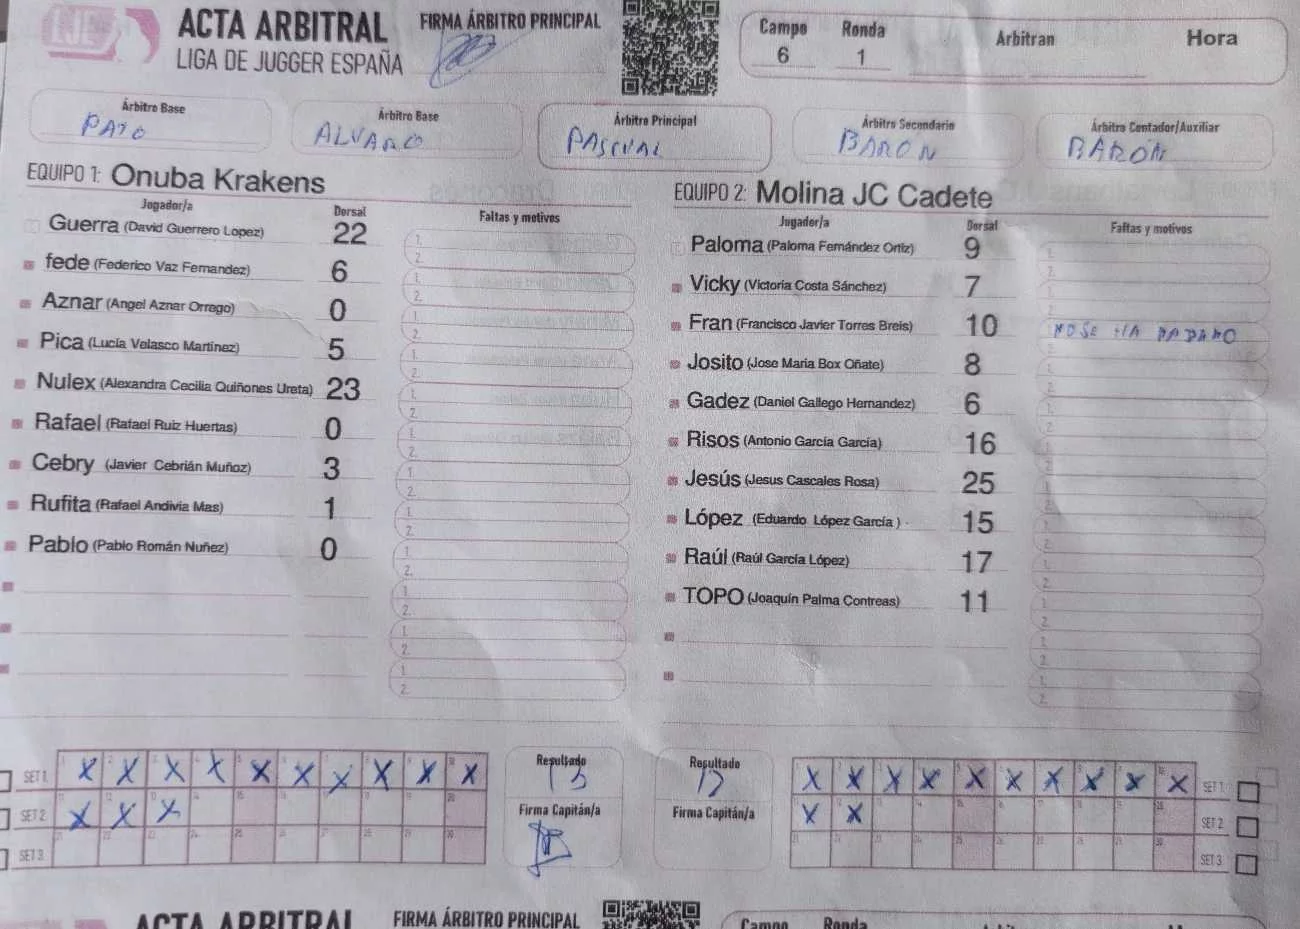 LJE
ACTA ARBITRAL
LIGA DE JUGGER ESPAÑA
FIRMA ÁRBITRO PRINCIPAL
Campo Ronda Arbitran Hora
6 1
Árbitro Base Árbitro Base Árbitro Principal Árbitro Secundario Árbitro Contador/Auxiliar
PATO ALVARO PASCUAL BARON BARÓN
EQUIPO 1: Onuba Krakens
Jugador/a Dorsal Faltas y motivos
Guerra (David Guerrero Lopez) 22 1. 2.
fede (Federico Vaz Fernandez) 6 1. 2.
Aznar (Angel Aznar Orrego) 0 1. 2.
Pica (Lucía Velasco Martínez) 5 1. 2.
Nulex (Alexandra Cecilia Quiñones Ureta) 23 1. 2.
Rafael (Rafael Ruiz Huertas) 0 1. 2.
Cebry (Javier Cebrián Muñoz) 3 1. 2.
Rufita (Rafael Andivia Mas) 1 1. 2.
Pablo (Pablo Román Nuñez) 0 1. 2.
1. 2.
1. 2.
1. 2.
EQUIPO 2: Molina JC Cadete
Jugador/a Dorsal Faltas y motivos
Paloma (Paloma Fernández Ortiz) 9 1. 2.
Vicky (Victoria Costa Sánchez) 7 1. 2.
Fran (Francisco Javier Torres Breis) 10 NO SE HA 2.
Josito (Jose Maria Box Oñate) 8 1. 2.
Gadez (Daniel Gallego Hernandez) 6 1. 2.
Risos (Antonio García García) 16 1. 2.
Jesús (Jesus Cascales Rosa) 25 1. 2.
López (Eduardo López García) 15 1. 2.
Raúl (Raúl García López) 17 1. 2.
TOPO (Joaquín Palma Contreras) 11 1. 2.
1. 2.
1. 2.
SET 1. X X X X X X X X X X
SET 2 X X X
SET 3.
Resultado
13
Firma Capitán/a
Resultado
12
Firma Capitán/a
X X X X X X X X X X SET 1
X X SET 2
SET 3
ACTA ARBITRAL
FIRMA ÁRBITRO PRINCIPAL
Campo Ronda